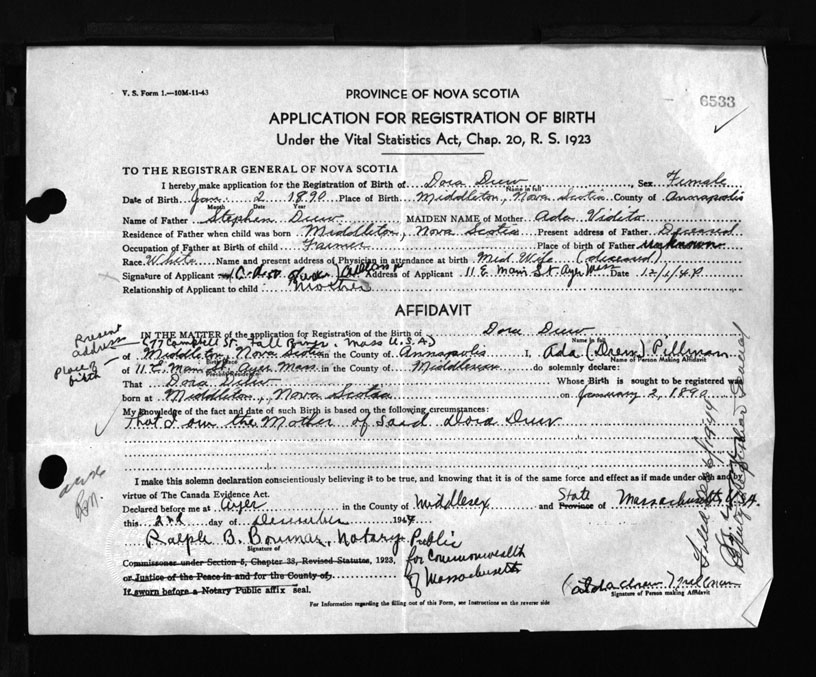 V. S. Form 1.—10M-11-43
PROVINCE OF NOVA SCOTIA
6533
APPLICATION FOR REGISTRATION OF BIRTH
Under the Vital Statistics Act, Chap. 20, R. S. 1923
TO THE REGISTRAR GENERAL OF NOVA SCOTIA
I hereby make application for the Registration of Birth of Dora Drew, Sex Female
Name in full
Date of Birth Jan. 2 1890 Place of Birth Middleton, Nova Scotia County of Annapolis
Month Date Year
Name of Father Stephen Drew MAIDEN NAME of Mother Ada
Residence of Father when child was born Middleton, Nova Scotia Present address of Father Deceased
Occupation of Father at Birth of child Farmer Place of birth of Father unknown
Race White Name and present address of Physician in attendance at birth Mid Wife (deceased)
Signature of Applicant Address of Applicant 11 E. Main St. Ayer Mass Date 12/1/44
Relationship of Applicant to child Mother
AFFIDAVIT
IN THE MATTER of the application for Registration of the Birth of Dora Drew
Name in full
Present address (577 Campbell St. Fall River, Mass U.S.A.)
Place of birth of Middleton, Nova Scotia in the County of Annapolis I, Ada (Drew) Pillman
Birth Place Name of Person Making Affidavit
of 11 E. Main St. Ayer, Mass. in the County of Middlesex do solemnly declare:
That Dora Drew Whose Birth is sought to be registered was
born at Middleton, Nova Scotia on January 2, 1890
My knowledge of the fact and date of such Birth is based on the following circumstances:
That I am the Mother of Said Dora Drew
I make this solemn declaration conscientiously believing it to be true, and knowing that it is of the same force and effect as if made under oath and by
virtue of The Canada Evidence Act.
Declared before me at Ayer in the County of Middlesex and State Province of Massachusetts, U.S.A.
this 2nd day of December 1944
Ralph B. Notary Public
Signature of
for Commonwealth
of Massachusetts
Commissoner under Section 5, Chapter 38, Revised Statutes, 1923,
or Justice of the Peace in and for the County of
If sworn before a Notary Public affix seal.
(Ada Drew) Pillman
Signature of Person making Affidavit
For Information regarding the filling out of this Form, see Instructions on the reverse side
Filed 1944
Deputy Registrar General